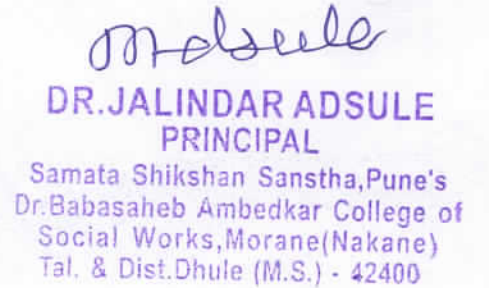 DR.JALINDAR ADSULE
PRINCIPAL
Samata Shikshan Sanstha,Pune's
Dr.Babasaheb Ambedkar College of
Social Works,Morane(Nakane)
Tal. & Dist.Dhule (M.S.) - 42400